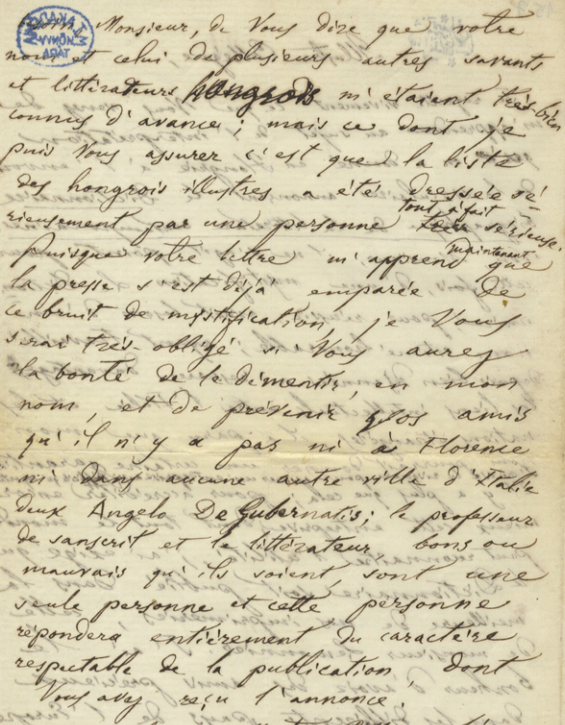 Monsieur, de Vous dire que votre
nom et celui de plusieurs autres savants
et littérateurs hongrois m'étaient très bien
connus d'avance; mais ce dont je
puis Vous assurer c'est que la liste
des hongrois illustres a été dressée sé-
rieusement par une personne tout à fait sérieuse.
Puisque votre lettre m'apprend maintenant que
la presse s'est déjà emparée de
ce bruit de mystification, je Vous
serai très obligé si Vous aurez
la bonté de le démentir, en mon
nom, et de prévenir vos amis
qu'il n'y a pas ni à Florence
ni dans aucune autre ville d'Italie
deux Angelo De Gubernatis; le professeur
de sanscrit et le littérateur, bons ou
mauvais qu'ils soient, sont une
seule personne et cette personne
répondera entièrement du caractère
respectable de la publication, dont
Vous avez reçu l'annonce.